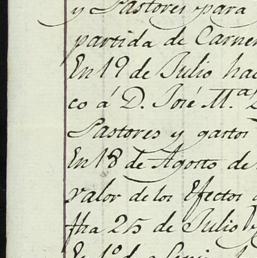 y Pastores para
partida de Carner
En 19 de Julio hac
co á D. José M.ª
Pastores y gastos
En 18 de Agosto de
valor de los Efectos
fha 25 de Julio